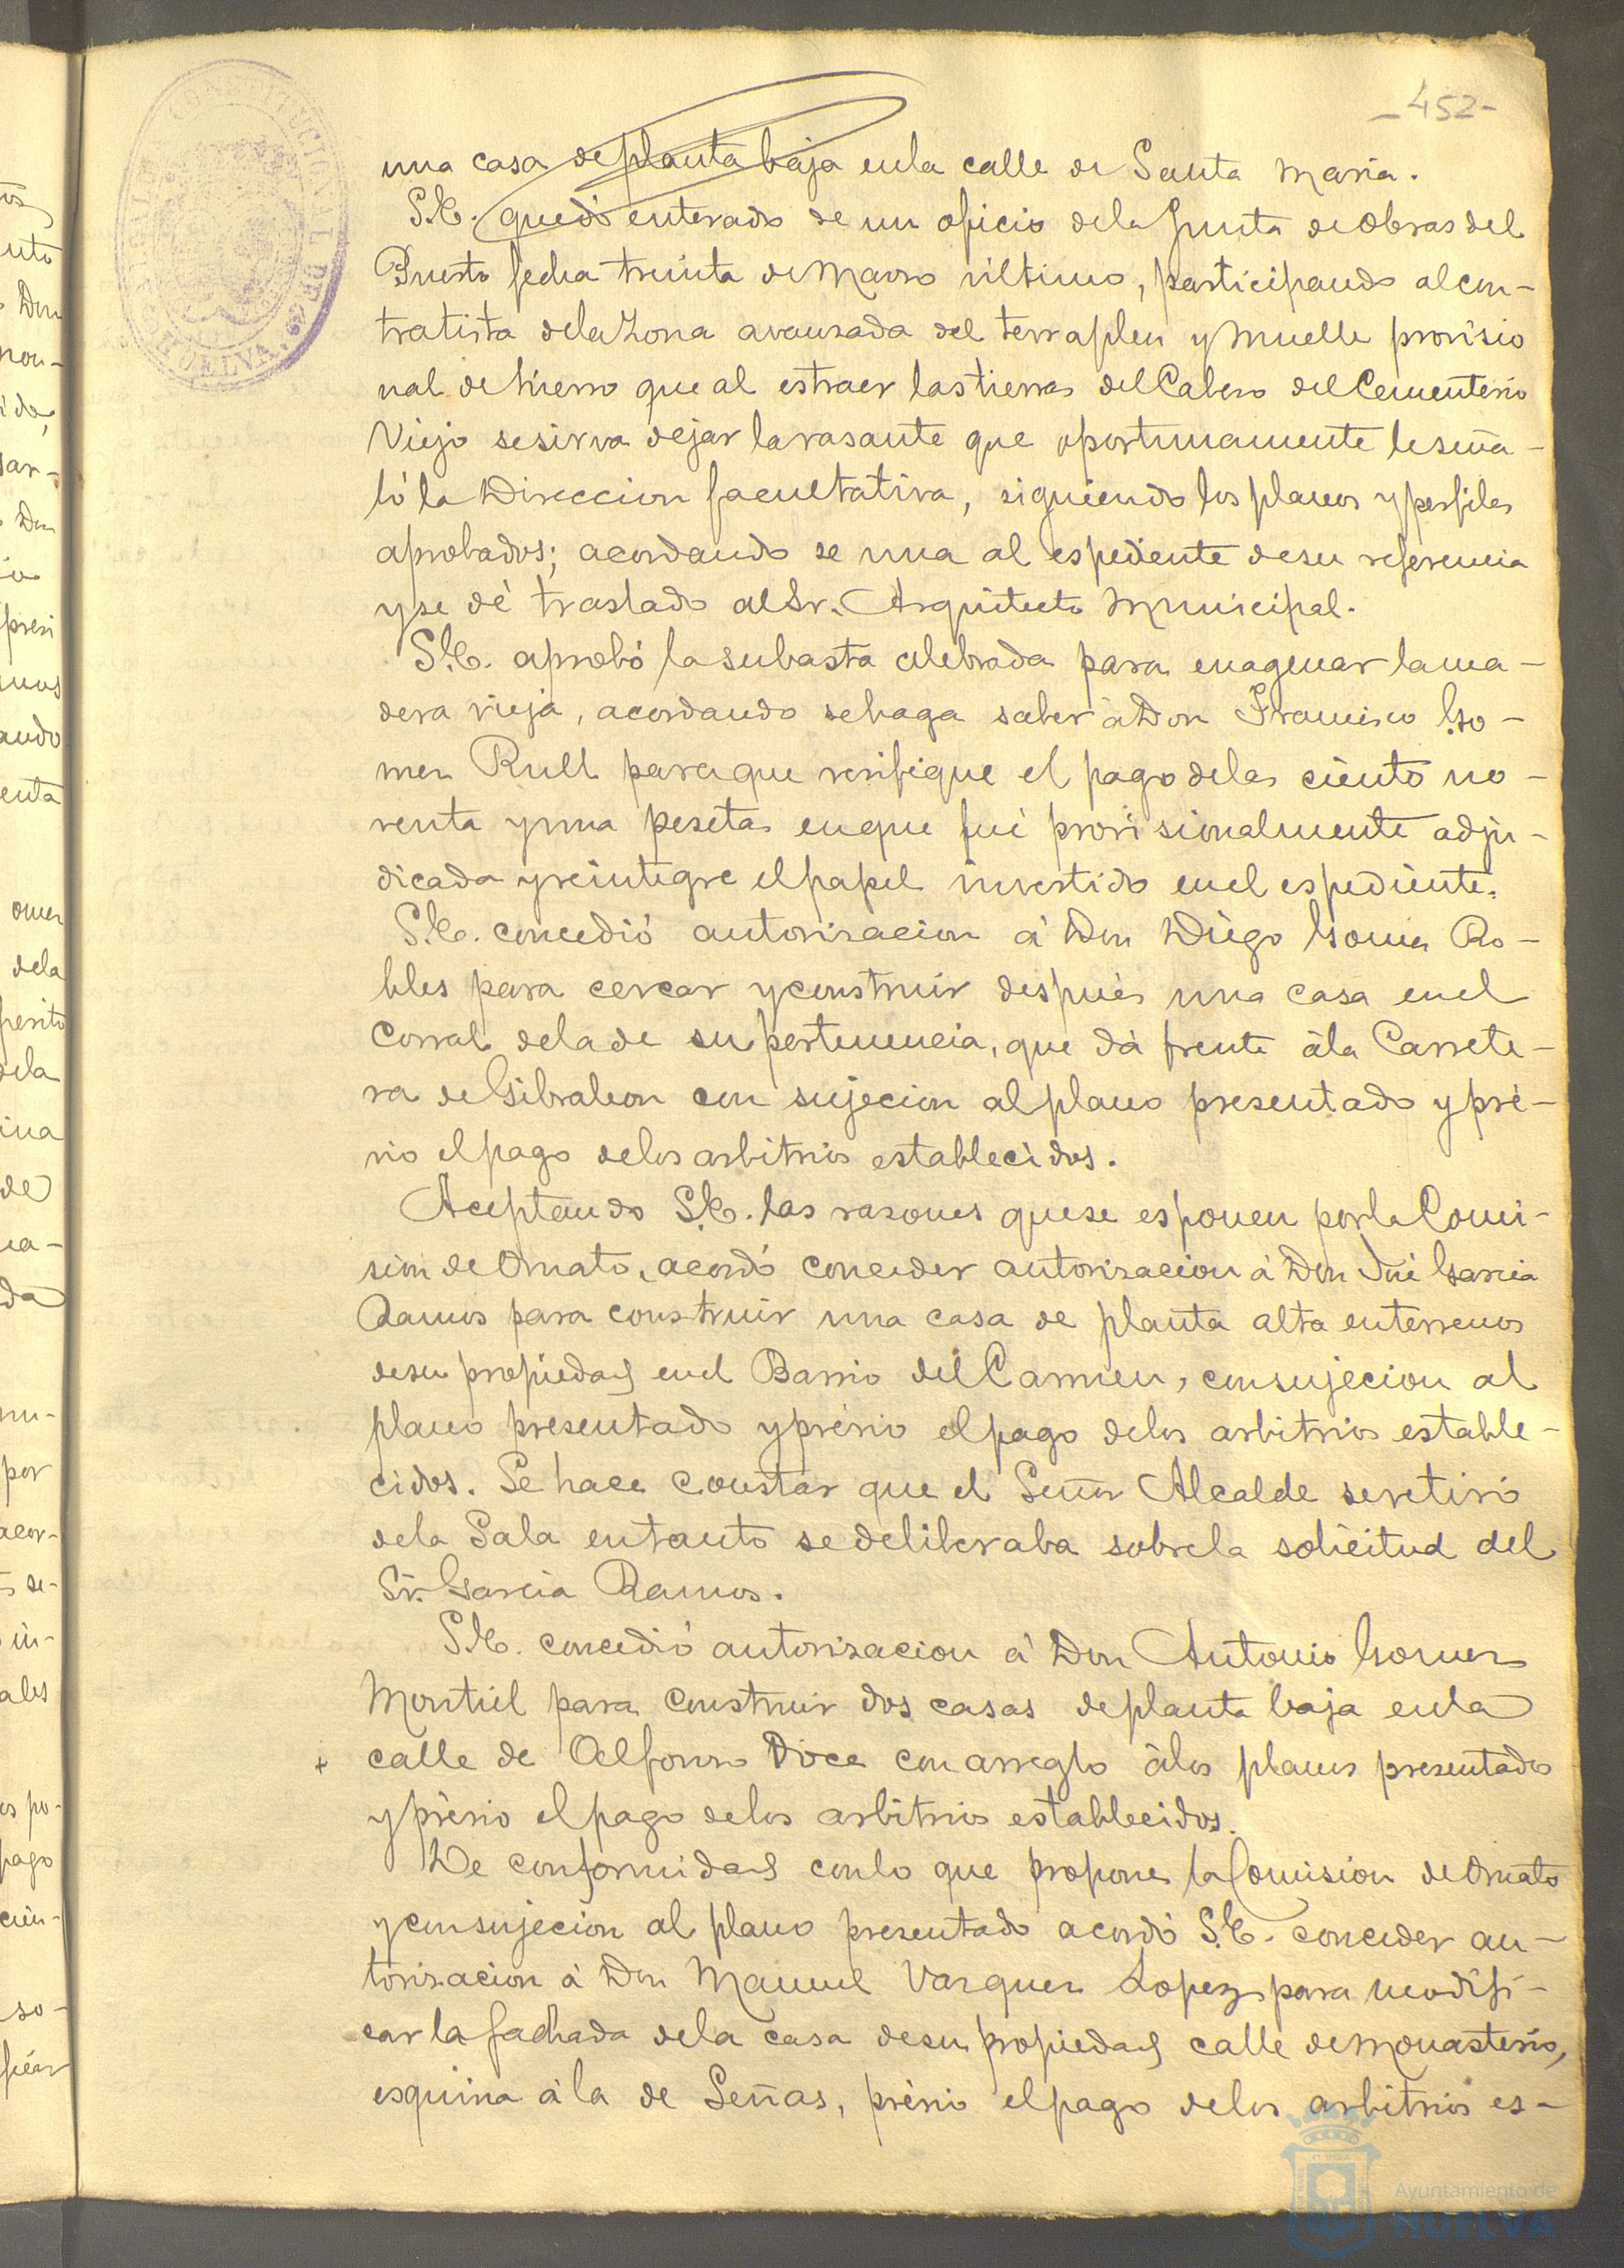 -452-
una casa de planta baja en la calle de Santa Maria.
S.E. quedó enterado de un oficio de la Junta de Obras del
Puerto fecha treinta de Marzo último, participando al con-
tratista de la Zona avanzada del terraplen y Muelle provisio
nal de hierro que al estraer las tierras del Cabezo del Cementerio
Viejo se sirva dejar la rasante que oportunamente le seña-
ló la Direccion facultativa, siguiendo los planos y perfiles
aprobados; acordando se una al espediente de su referencia
y se dé traslado al Sr. Arquitecto Municipal.
S.E. aprobó la subasta celebrada para enagenar la ma-
dera vieja, acordando se haga saber á Don Francisco Go-
mez Rull para que verifique el pago de las ciento no-
venta y una pesetas en que fué provisionalmente adju-
dicada y reintegre el papel invertido en el espediente.
S.E. concedió autorizacion á Don Diego Gomez Ro-
bles para cercar y construir después una casa en el
Corral de la de su pertenencia, que dá frente á la Carrete-
ra de Gibraleon con sujecion al plano presentado y pré-
vio el pago de los arbitrios establecidos.
Aceptando S.E. las razones que se esponen por la Comi-
sion de Ornato, acordó conceder autorizacion á Don José Garcia
Ramos para construir una casa de planta alta en terrenos
de su propiedad en el Barrio del Carmen, con sujecion al
plano presentado y prévio el pago de los arbitrios estable-
cidos. Se hace constar que el Señor Alcalde se retiró
de la Sala en tanto se deliberaba sobre la solicitud del
Sr. Garcia Ramos.
S.E. concedió autorizacion á Don Antonio Gomez
Montiel para construir dos casas de planta baja en la
+ calle de Alfonso Doce con arreglo á los planos presentados
y prévio el pago de los arbitrios establecidos.
De conformidad con lo que propone la Comision de Ornato
y con sujecion al plano presentado acordó S.E. conceder au-
torizacion á Don Manuel Vazquez Lopez para modifi-
car la fachada de la casa de su propiedad calle de Monasterio,
esquina á la de Señas, prévio el pago de los arbitrios es-
CONSTITUCIONAL DE
HUELVA
Ayuntamiento de
HUELVA